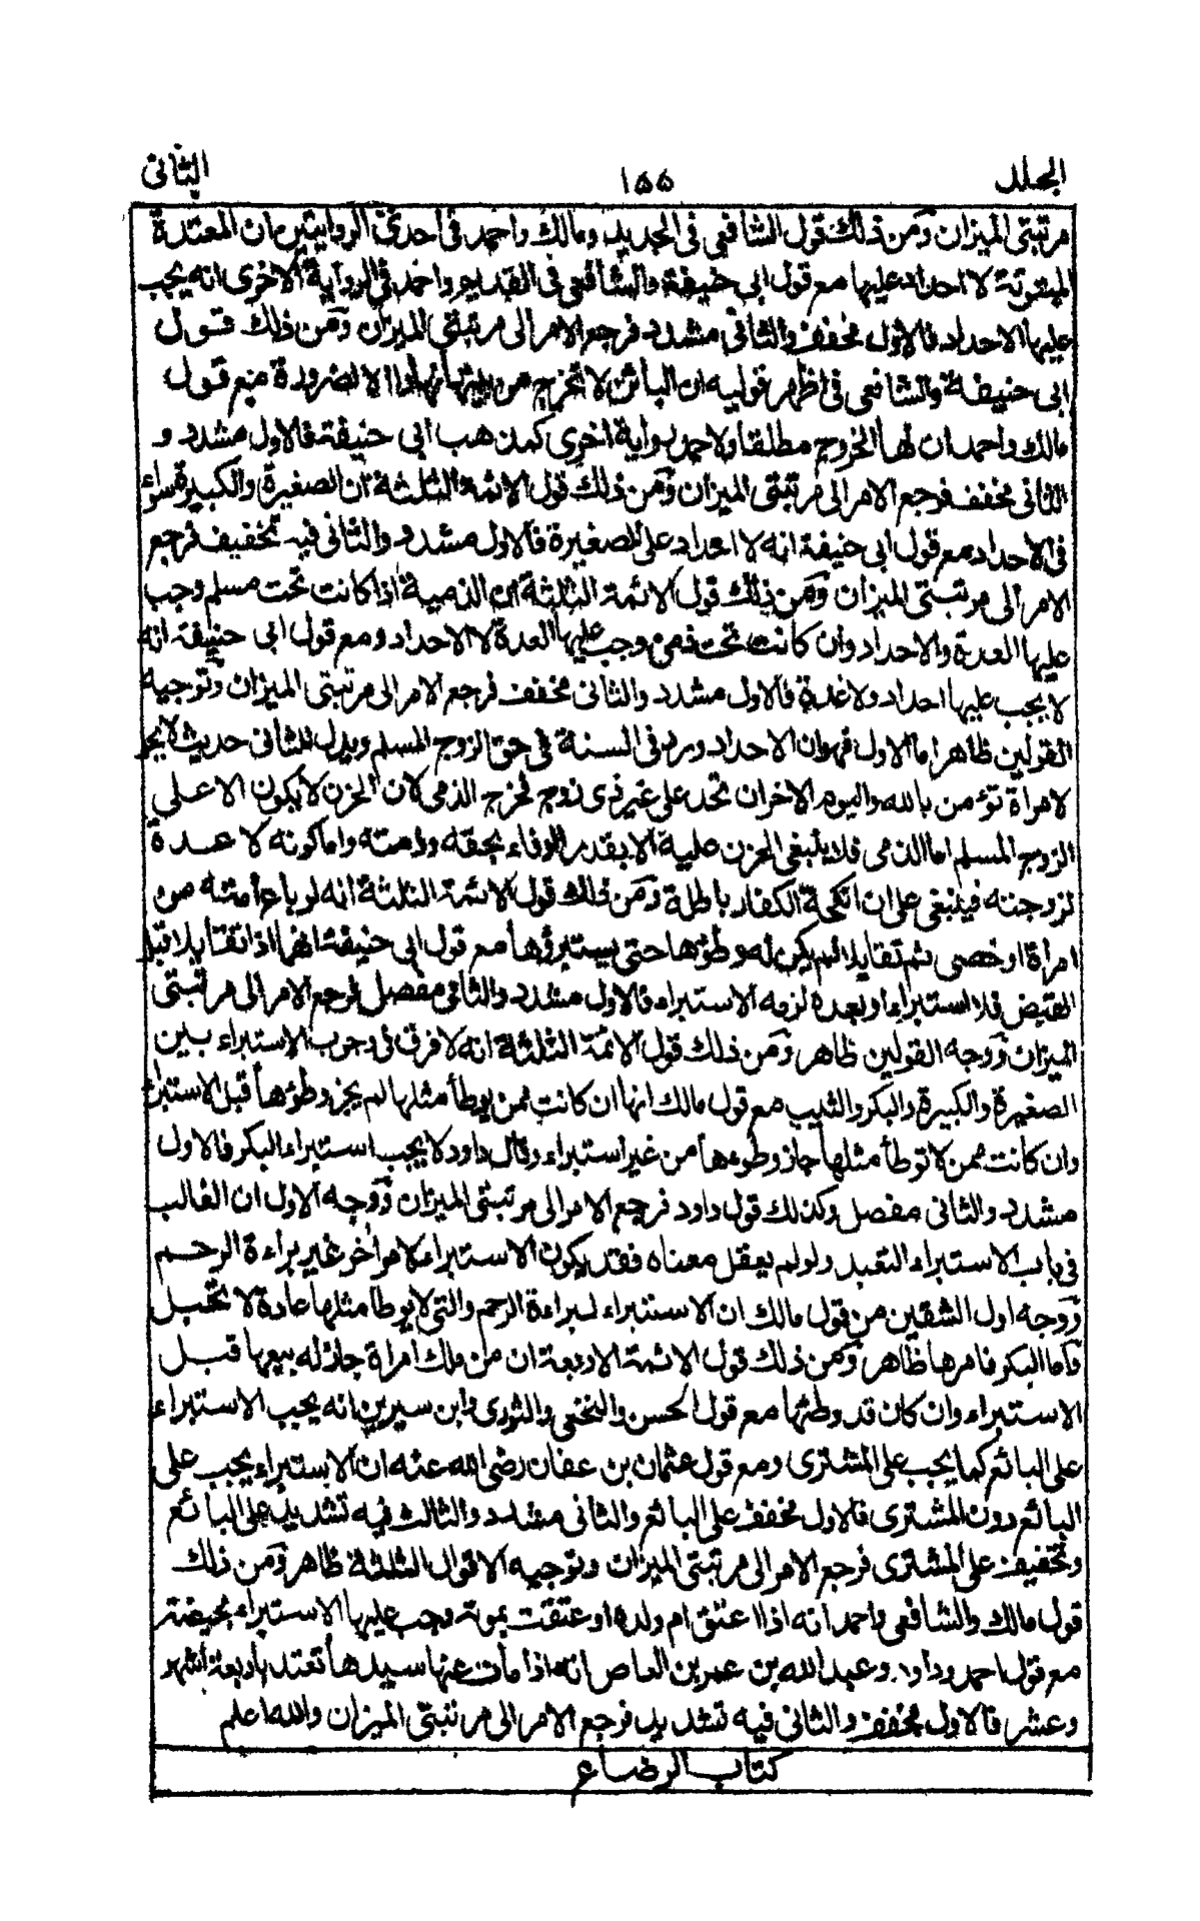 الجلد ۱۵۵ الثانى
مرتبتى الميزان ومن ذلك قول الشافعى فى الجديد ومالك واحمد فى احدى الروايتين ان المعتدة
المبتوتة لا احداد عليها مع قول ابى حنيفة والشافعى فى القديم واحمد فى الرواية الاخرى انه يجب
عليها الاحداد فالاول مخفف والثانى مشدد فرجع الامر الى مرتبتى الميزان ومن ذلك قول
ابى حنيفة والشافعى فى اظهر قوليه ان البائن لا تخرج من بيتها نهارا الا لضرورة مع قول
مالك واحمد ان لها الخروج مطلقا ولاحمد رواية اخرى كمذهب ابى حنيفة فالاول مشدد و
الثانى مخفف فرجع الامر الى مرتبتى الميزان ومن ذلك قول الائمة الثلثة ان الصغيرة والكبيرة سواء
فى الاحداد مع قول ابى حنيفة انه لا احداد على الصغيرة فالاول مشدد والثانى فيه تخفيف فرجع
الامر الى مرتبتى الميزان ومن ذلك قول الائمة الثلثة ان الذمية اذا كانت تحت مسلم وجب
عليها العدة والاحداد وان كانت تحت ذمى وجب عليها العدة لا الاحداد ومع قول ابى حنيفة انه
لا يجب عليها احداد ولا عدة فالاول مشدد والثانى مخفف فرجع الامر الى مرتبتى الميزان وتوجيه
القولين ظاهر اما الاول فهو ان الاحداد ورد فى السنة فى حق الزوج المسلم ويدل للثانى حديث لا يحل
لامراة تؤمن بالله واليوم الاخر ان تحد على غير ذى زوج فخرج الذمى لان الحزن لا يكون الا على
الزوج المسلم اما الذمى فلا ينبغى الحزن عليه الا بقدر الوفاء بحقه وذمته واما كونه لا عدة
لزوجته فينبغى على ان انكحة الكفار باطلة ومن ذلك قول الائمة الثلثة انه لو باع امته من
امراة او خصى ثم تقايلا لم يكن له وطؤها حتى يستبرؤها مع قول ابى حنيفة انهما اذا تقايلا قبل
القبض فلا استبراء او بعده لزمه الاستبراء فالاول مشدد والثانى مفصل فرجع الامر الى مرتبتى
الميزان ووجه القولين ظاهر ومن ذلك قول الائمة الثلثة انه لا فرق فى وجوب الاستبراء بين
الصغيرة والكبيرة والبكر والثيب مع قول مالك انها ان كانت ممن يوطأ مثلها لم يجز وطؤها قبل الاستبراء
وان كانت ممن لا توطأ مثلها جاز وطوءها من غير استبراء وقال داود لا يجب استبراء البكر فالاول
مشدد والثانى مفصل وكذلك قول داود فرجع الامر الى مرتبتى الميزان ووجه الاول ان الغالب
فى باب الاستبراء التعبد ولو لم يعقل معناه فقد يكون الاستبراء لامر اخر غير براءة الرحم
ووجه اول الشقين من قول مالك ان الاستبراء لبراءة الرحم والتى لا يوطأ مثلها عادة لا تحبل
واما البكر فامرها ظاهر ومن ذلك قول الائمة الاربعة ان من ملك امراة جاز له بيعها قبل
الاستبراء وان كان قد وطئها مع قول الحسن والنخعى والثورى وابن سيرين انه يجب الاستبراء
على البائع كما يجب على المشترى ومع قول عثمان بن عفان رضى الله عنه ان الاستبراء يجب على
البائع دون المشترى فالاول مخفف على البائع والثانى مشدد والثالث فيه تشديد على البائع
وتخفيف على المشترى فرجع الامر الى مرتبتى الميزان وتوجيه الاقوال الثلثة ظاهر ومن ذلك
قول مالك والشافعى واحمد انه اذا اعتق ام ولده او عتقت بموته وجب عليها الاستبراء بحيضة
مع قول احمد وداود وعبد الله بن عمر بن العاص انه اذا مات عنها سيدها تعتد باربعة اشهر
وعشر فالاول مخفف والثانى فيه تشديد فرجع الامر الى مرتبتى الميزان والله اعلم
كتاب الرضاع